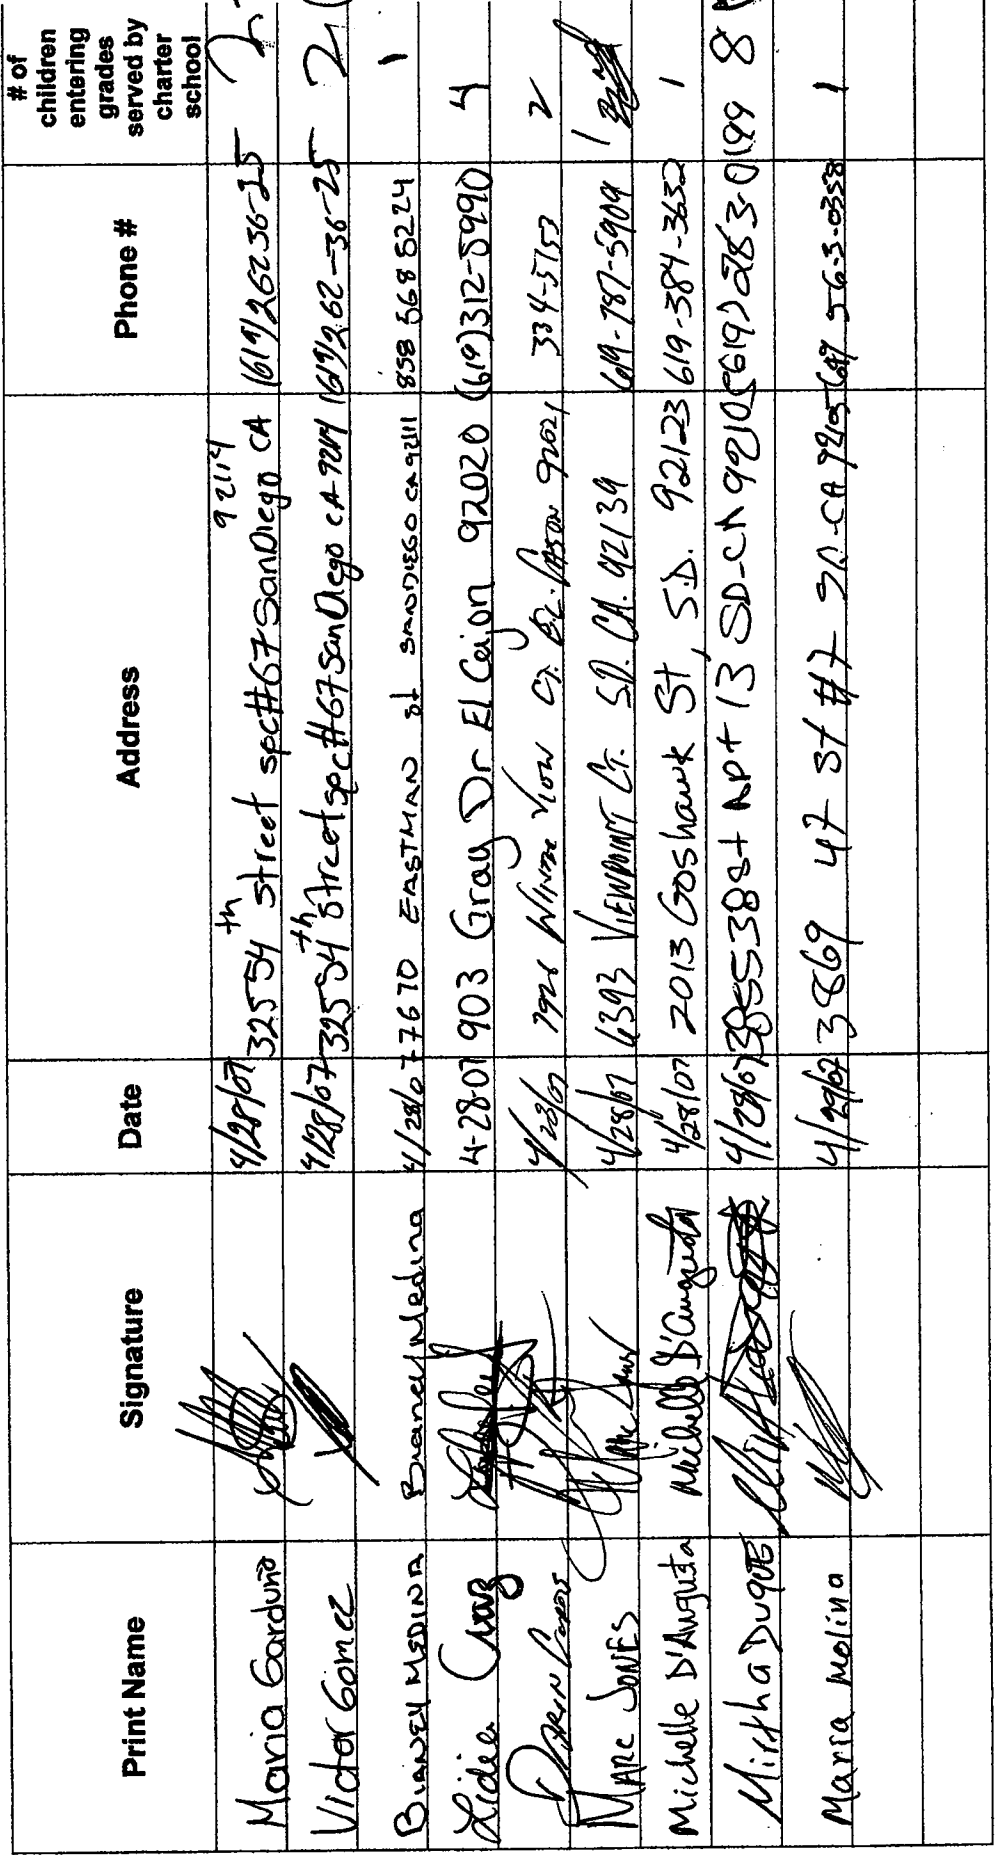 Print Name Signature Date Address Phone # # of children entering grades served by charter school
Maria Garduño 4/28/07 325 54th street spc#67 San Diego CA 92114 (619)262 36-25 2
Victor Gomez 4/28/07 325 54th Street spc#67 San Diego CA 92114 (619)262-36-25 2
BIANEY MEDINA Bianey Medina 4/28/07 7670 EASTMAN st SANDIEGO CA 92111 858 568 5224 1
Lidia Cruz 4-28-07 903 Gray Dr El Cajon 92020 (619)312-5990 4
4/28/07 View Ct. 92021 334-5753 2
MARC JONES 4/28/07 6393 VIEWPOINT CT. S.D. CA. 92139 619-787-5909 1
Michelle D'Augusta Michelle D'Augusta 4/28/07 2013 Goshawk St, S.D. 92123 619-384-3632 1
Mirtha DUQUE 4/28/07 3855 38st APt 13 SD-CA 92105 (619) 283-0199 8
Maria Molina 4/29/07 3869 47 St #7 SD-CA 92105 1